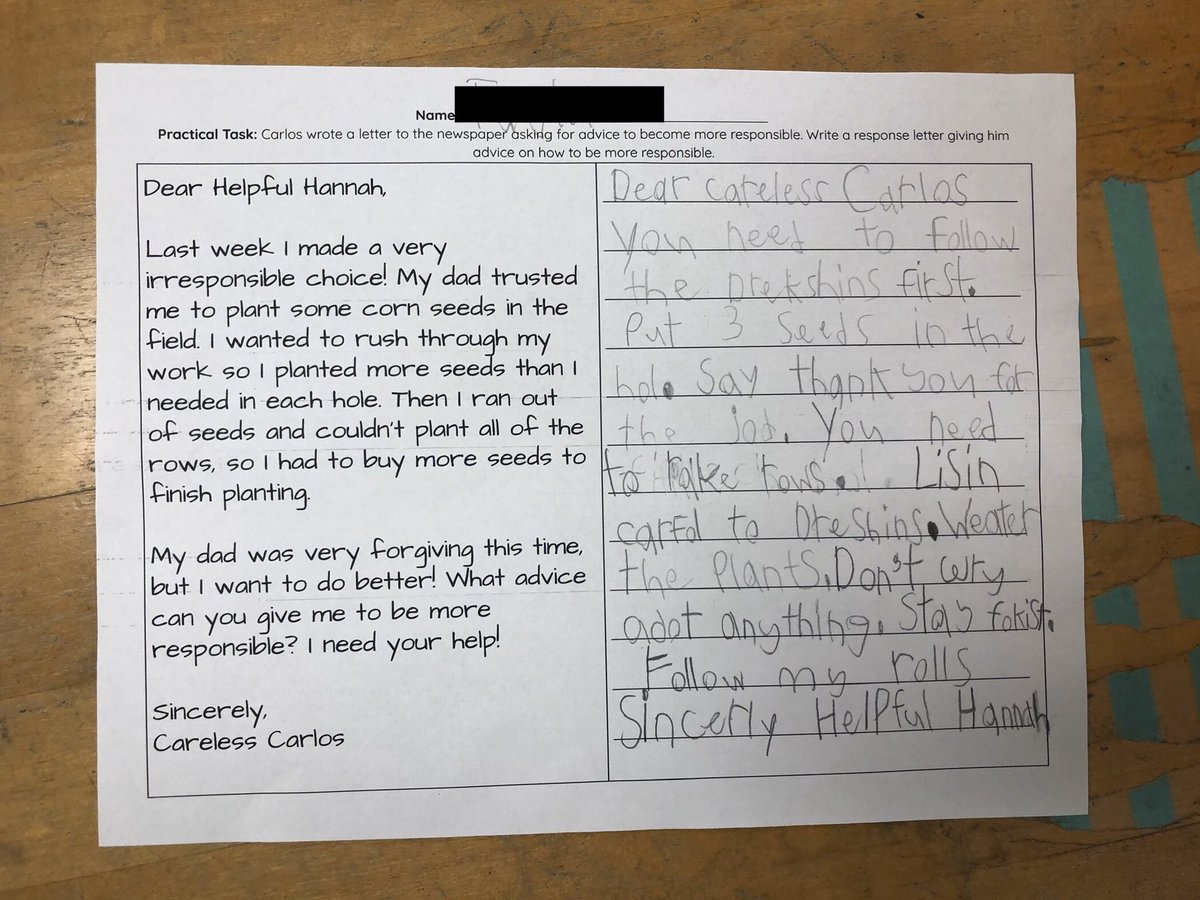 Name
Practical Task: Carlos wrote a letter to the newspaper asking for advice to become more responsible. Write a response letter giving him
advice on how to be more responsible.
Dear Helpful Hannah,
Last week I made a very
irresponsible choice! My dad trusted
me to plant some corn seeds in the
field. I wanted to rush through my
work so I planted more seeds than I
needed in each hole. Then I ran out
of seeds and couldn't plant all of the
rows, so I had to buy more seeds to
finish planting.
My dad was very forgiving this time,
but I want to do better! What advice
can you give me to be more
responsible? I need your help!
Sincerely,
Careless Carlos
Dear careless Carlos
You need to follow
the Drekshins first.
Put 3 seeds in the
hol. Say thank you for
the jod. You need
to rows. Lisin
carfol to Dreshins. Weater
the Plants. Don't wry
adot anything. Stay fokist.
Follow my rolls
Sincerly Helpful Hannah